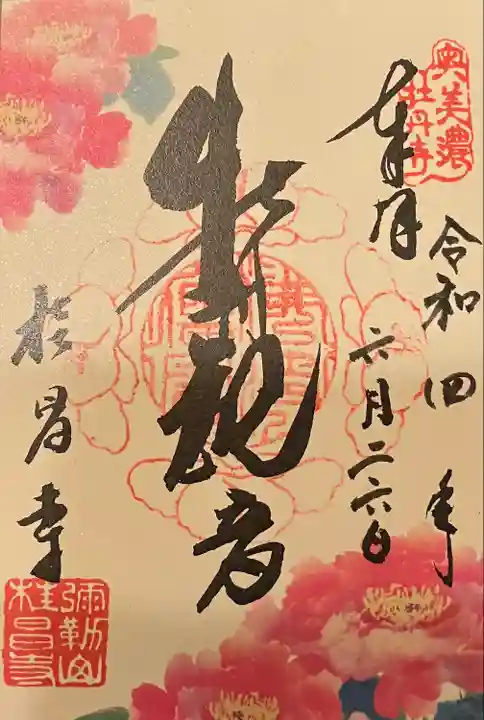 奥美濃
牡丹寺
奉拝
令和四年
六月二六日
観音
桂昌寺
彌勒山
桂昌寺